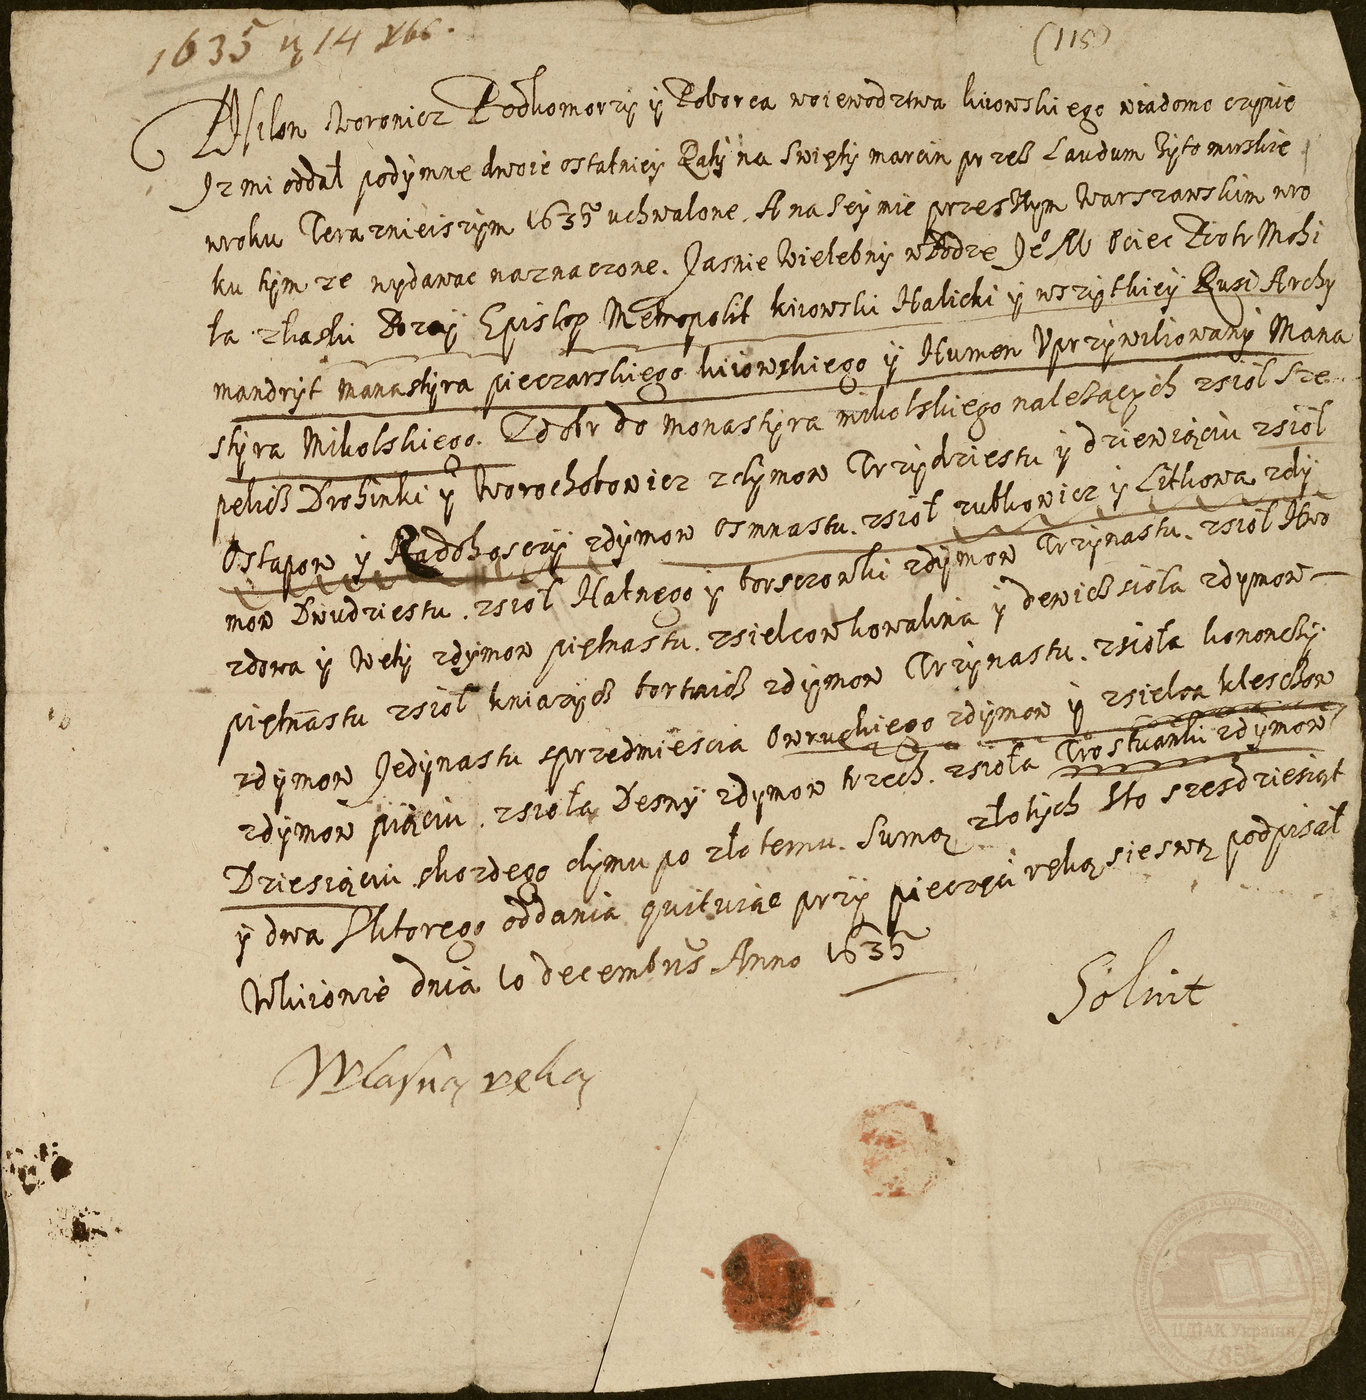 1635 ц 14 xbc.
(115)
Filon Woronicz Podkomorzy y Poborca woiewodztwa kiiowskiego wiadomo czynie
Iz mi oddał podymne dwoie ostatniey Raty na Swięty marcin przeß Laudum Zytomirskie
wroku Teraznieiszym 1635 uchwalone. A na Seymie przeszłym Warszawskim wro
ku tym ze wydawac naznaczone. Jasnie Wielebny wBodze Je° M Ociec Piotr Mohi
ła złaski Bozey Episkop Metropolit kiiowski Halicki y wszytkiey Rusi Archy
mandryt manastyra pieczarskiego kiiowskiego y Humen Uprzywiliowany Mana
styra Mikolskiego. Zdobr do monastyra mikolskiego należących zsiół Sze
pelich Drohinki y Worochobowicz zdymow Trzydziestu y dziewiąciu zsiół
Ostapow y Radohoszczy zdymow osmnastu. zsiół zubkowicz y Litkowa zdy
mow Dwudziestu. zsiół Hatnego y borszczowki zdymow Trzynastu. zsiół Hwo
zdowa y Wety zdymow piętnastu. zsielcow kowalina y dewich sioła zdymow
piętnastu zsiół kniazych bortnich zdymow Trzynastu. zsioła kononchy
zdymow Jedynastu sprzedmiescia Owruckiego zdymow y zsielca kleschow
zdymow piąciu. zsioła Desny zdymow trzech. zsioła Trostianki zdymow
Dziesiąciu skozdego dymu po złotemu. Sumą złotych Sto szesdziesiąt
y dwa Sktorego oddania quituiąc przy pieczęci ręką sie swą podpisał
Wkiiowie dnia 10 decembris Anno 1635
Własną ręką